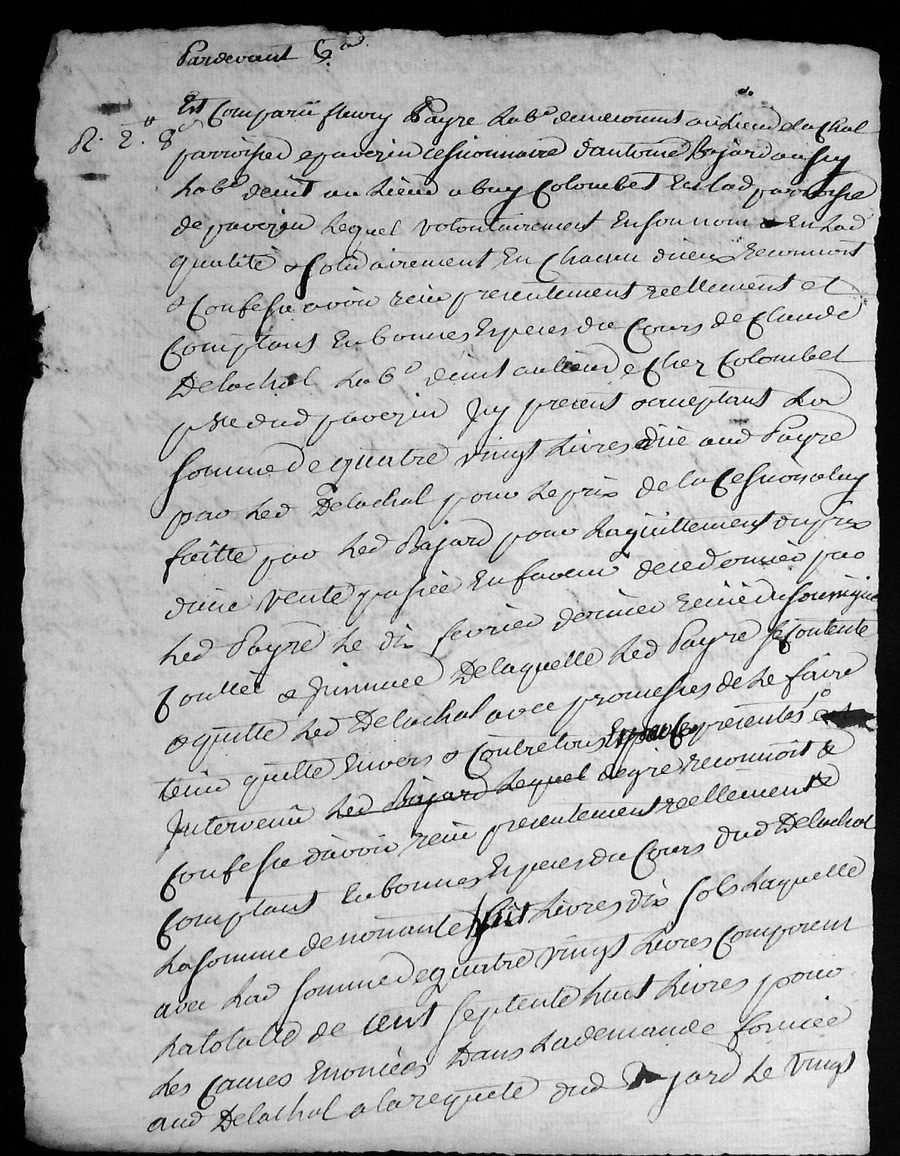 Pardevant &a
R. 2." 8
Est Comparü fleury Payre Labr demeurant au Lieu de la Chal
parroisse de paverzin Cessionnaire dantoine Bajard aussy
Labr demt au Lieu a buy Colombet En lad parroisse
de paverzin Lequel volontairement En son nom & En Lad
qualité & Solidairement En Chacun dieux reconnoit
& Confesse avoir reçu presentement reellement et
Comptant En bonnes Especes du Cours de Claude
Delachal Labr demt au lieu de Chez Colombet
psse dud paverzin Icy present & acceptant La
Somme de quatre vingt Livres düe aud Payre
par Led Delachal pour Le prix de la Cession a luy
faitte par Led Bajard pour Laquittement du prix
dune vente passée En faveur de ce dernier par
Led Payre Le dix fevrier dernier reçüe du soussigné
Coullée & Insinuée De laquelle Led Payre se Contente
& quitte Led Delachal avec promesses de Le faire
tenir quitte Envers & Contre tous Ces presentes est
Intervenü Led Bajard Lequel de gre reconnoit &
Confesse davoir reçu presentement reellement &
Comptant En bonnes Especes du Cours dud Delachal
La somme de nonante huit Livres dix sols Laquelle
avec Lad somme de quatre vingt Livres Composent
La totalle de cent septente huit Livres pour
Les Causes Enoncées Dans La demande formée
aud Delachal a la requete dud Bajard Le vingt